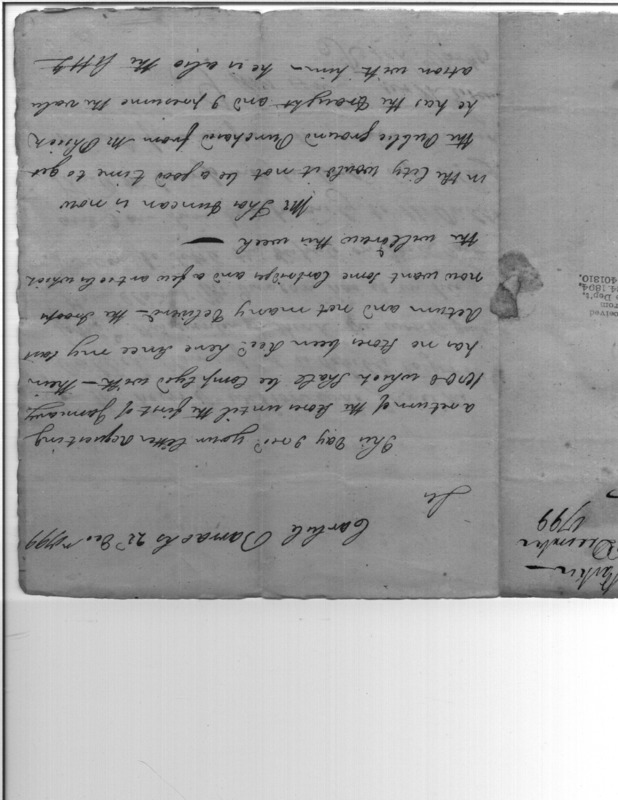 Carlisle Barracks 22d Decr 1799
Sir
This Day I recd your letter Requesting
a return of the Stores until the first of January
1800 which Shall be complyed with – their
has no Stores been Recd here Since my last
Return and not many Delivered – the troops
now want Some Cartridges and a few articles which
the will draw this week –
Mr Thos Duncan is now
in the City would it not be a good time to get
the Public ground Purchased from Mr
he has the Draught and I presume the valu
ation with him – he is also the
Decemebr
1799
ceived
rom
Dep't.
1804.
401810.